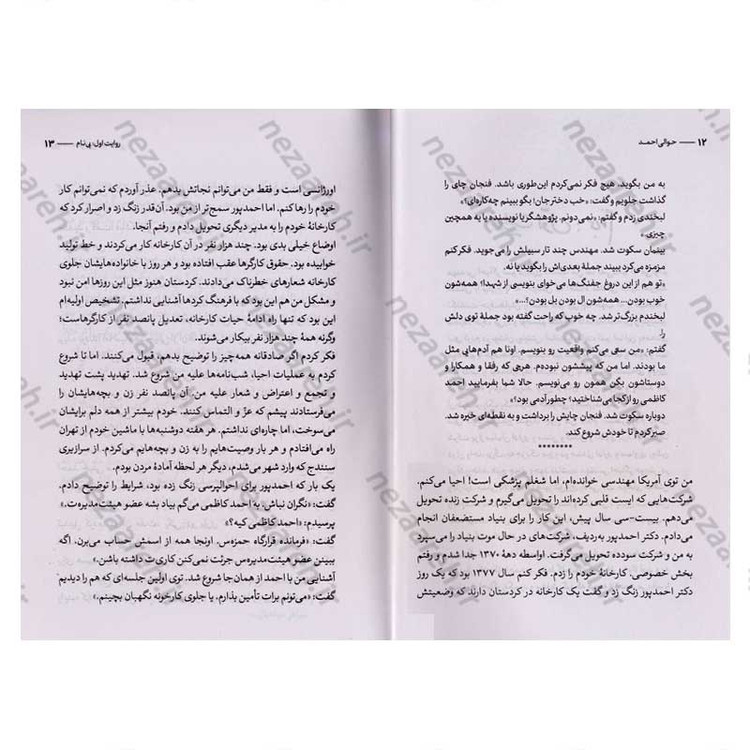 ۱۲ —— حوالی احمد
به من بگوید، هیچ فکر نمی‌کردم این‌طوری باشد. فنجان چای را
گذاشت جلویم و گفت: «خب دخترجان! بگو ببینم چه‌کاره‌ای؟»
لبخندی زدم و گفتم: «نمی‌دونم. پژوهشگر یا نویسنده یا یه همچین
چیزی.»
بینمان سکوت شد. مهندس چند تار سبیلش را می‌جوید. فکر کنم
مزمزه می‌کرد ببیند جملهٔ بعدی‌اش را بگوید یا نه.
«تو هم از این دروغ جفنگ‌ها می‌خوای بنویسی از شهیدا؟ همه‌شون
خوب بودن... همه‌شون ال بودن بل بودن؟...»
لبخندم بزرگ‌تر شد. چه خوب که راحت گفته بود جملهٔ توی دلش
را
گفتم: «من سعی می‌کنم واقعیت رو بنویسم. اونا هم آدم‌هایی مثل
ما بودند. اما من که پیششون نبوده‌م. هرچی که رفقا و همکارا و
دوستاشون بگن همون رو می‌نویسم. حالا شما بفرمایید احمد
کاظمی رو از کجا می‌شناختید؟ چطور آدمی بود؟»
دوباره سکوت شد. فنجان چایش را برداشت و به نقطه‌ای خیره شد.
صبر کردم تا خودش شروع کند.
********
من توی آمریکا مهندسی خوانده‌ام، اما شغلم پزشکی است! احیا می‌کنم.
شرکت‌هایی که ایست قلبی کرده‌اند را تحویل می‌گیرم و شرکت زنده تحویل
می‌دهم. بیست‌-سی سال پیش، این کار را برای بنیاد مستضعفان انجام
می‌دادم. دکتر احمدپور به‌ردیف، شرکت‌های در حال موت بنیاد را می‌سپرد
به من و شرکت سودده تحویل می‌گرفت. اواسط دههٔ ۱۳۷۰ جدا شدم و رفتم
بخش خصوصی، کارخانهٔ خودم را زدم. فکر کنم سال ۱۳۷۷ بود که یک روز
دکتر احمدپور زنگ زد و گفت یک کارخانه در کردستان دارند که وضعیتش
روایت اول: بی‌نام —— ۱۳
اورژانسی است و فقط من می‌توانم نجاتش بدهم. عذر آوردم که نمی‌توانم کار
خودم را رها کنم. اما احمدپور سمج‌تر از من بود. آن‌قدر زنگ زد و اصرار کرد که
کارخانهٔ خودم را به مدیر دیگری تحویل دادم و رفتم آنجا.
اوضاع خیلی بدی بود. چند هزار نفر در آن کارخانه کار می‌کردند و خط تولید
خوابیده بود. حقوق کارگرها عقب افتاده بود و هر روز با خانواده‌هایشان جلوی
کارخانه شعارهای خطرناک می‌دادند. کردستان هنوز مثل این روزها امن نبود
و مشکل من هم این بود که با فرهنگ کردها آشنایی نداشتم. تشخیص اولیه‌ام
این بود که تنها راه ادامهٔ حیات کارخانه، تعدیل پانصد نفر از کارگرهاست؛
وگرنه همهٔ چند هزار نفر بیکار می‌شوند.
فکر کردم اگر صادقانه همه‌چیز را توضیح بدهم، قبول می‌کنند. اما تا شروع
کردم به عملیات احیا، شب‌نامه‌ها علیه من شروع شد. تهدید پشت تهدید
و تجمع و اعتراض و شعار علیه من. آن پانصد نفر زن و بچه‌هایشان را
می‌فرستادند پیشم که عزّ و التماس کنند. خودم بیشتر از همه دلم برایشان
می‌سوخت، اما چاره‌ای نداشتم. هر هفته دوشنبه‌ها با ماشین خودم از تهران
راه می‌افتادم و هر بار وصیت‌هایم را به زن و بچه‌هایم می‌کردم. از سرازیری
سنندج که وارد شهر می‌شدم، دیگر هر لحظه آمادهٔ مردن بودم.
یک بار که احمدپور برای احوالپرسی زنگ زده بود، شرایط را توضیح دادم.
گفت: «نگران نباش. به احمد کاظمی می‌گم بیاد بشه عضو هیئت‌مدیره‌ت.»
پرسیدم: «احمد کاظمی کیه؟»
گفت: «فرمانده قرارگاه حمزه‌س. اونجا همه از اسمش حساب می‌برن. اگه
ببینن عضو هیئت‌مدیره‌س جرئت نمی‌کنن کاری‌ت داشته باشن.»
آشنایی من با احمد از همان جا شروع شد. توی اولین جلسه‌ای که هم را دیدیم
گفت: «می‌تونم برات تأمین بذارم. یا جلوی کارخونه نگهبان بچینم.»
nezaareh.ir